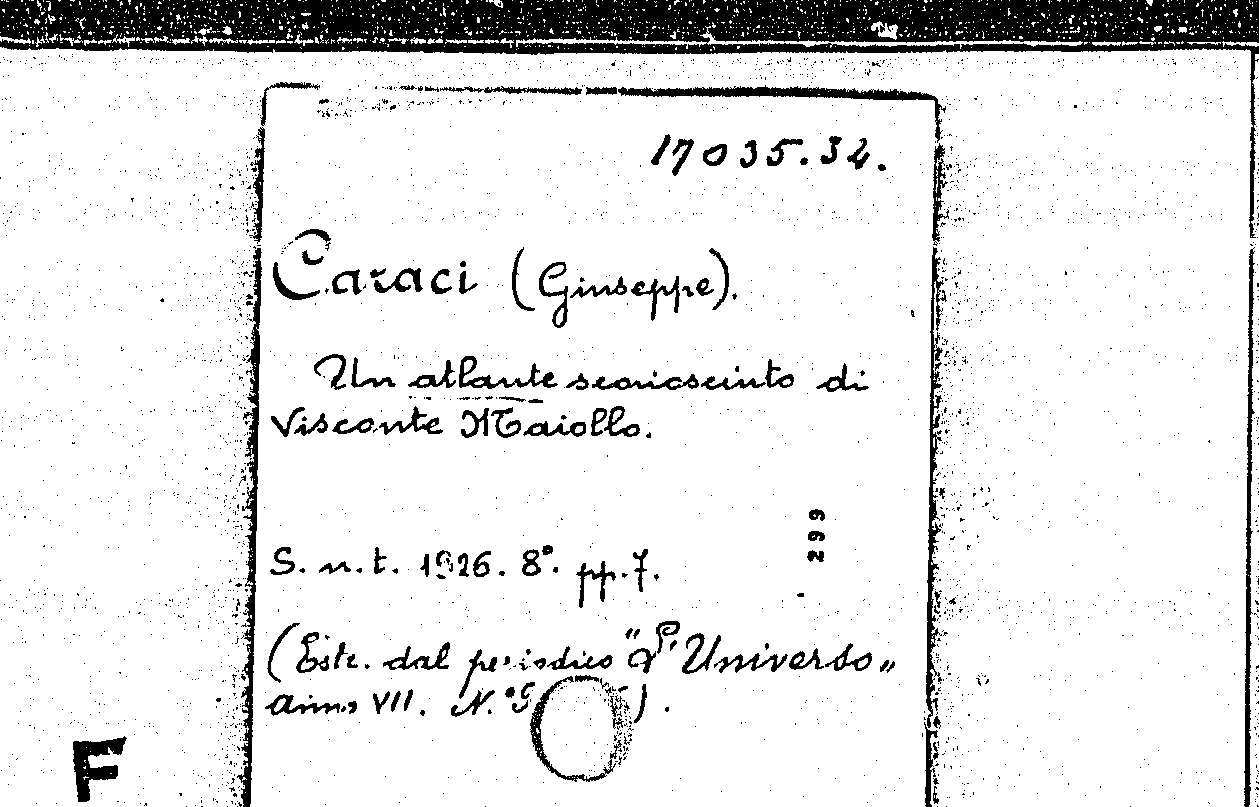 17035.34.
Caraci (Giuseppe).
Un atlante sconosciuto di
Visconte Maiollo.
299
S. n. t. 1926. 8°. pp. 7.
(Estr. dal periodico "L'Universo„
anno VII. N.°
F